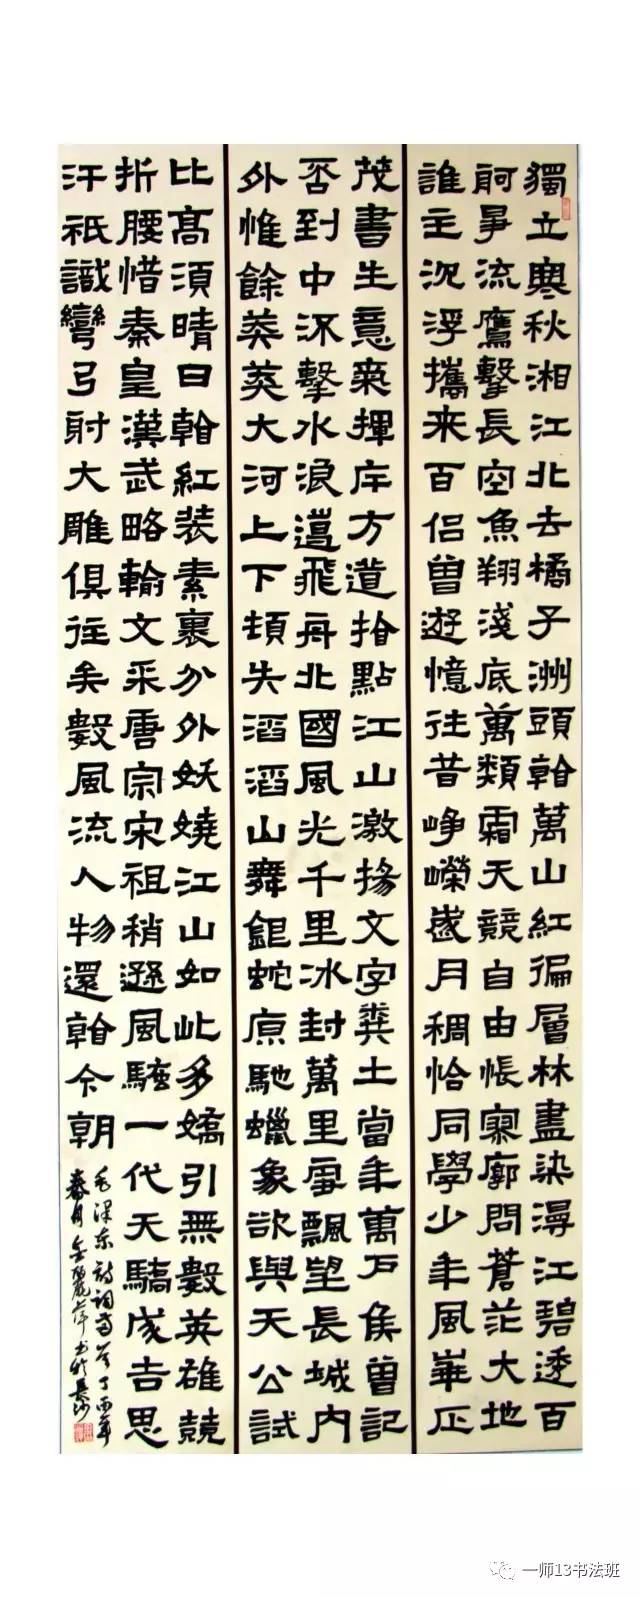 獨立寒秋湘江北去橘子洲頭看萬山紅徧層林盡染漫江碧透百
舸爭流鷹擊長空魚翔淺底萬類霜天競自由悵寥廓問蒼茫大地
誰主沉浮攜来百侶曾遊憶往昔崢嶸歲月稠恰同學少年風華正
茂書生意氣揮斥方遒指點江山激揚文字糞土當年萬戶侯曾記
否到中流擊水浪遏飛舟北國風光千里冰封萬里雪飄望長城内
外惟餘莽莽大河上下頓失滔滔山舞銀蛇原馳蠟象欲與天公試
比高須晴日看紅裝素裹分外妖嬈江山如此多嬌引無數英雄競
折腰惜秦皇漢武略輸文采唐宗宋祖稍遜風騷一代天驕成吉思
汗祇識彎弓射大雕俱往矣數風流人物還看今朝
毛澤東詩詞兩首丁酉年
春月岳麗萍书於長沙
一师13书法班